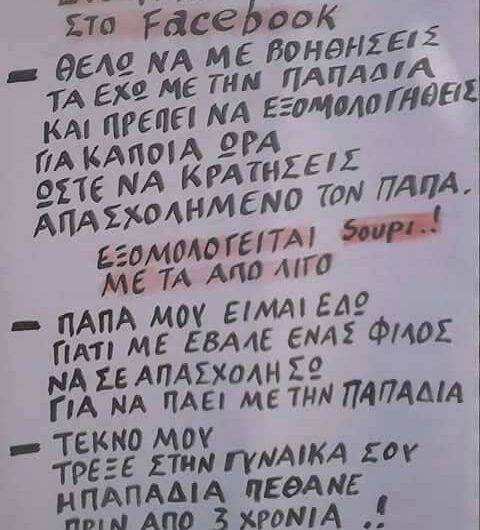 ΣΤΟ FacebooK
- ΘΕΛΩ ΝΑ ΜΕ ΒΟΗΘΗΣΕΙΣ
ΤΑ ΕΧΩ ΜΕ ΤΗΝ ΠΑΠΑΔΙΑ
ΚΑΙ ΠΡΕΠΕΙ ΝΑ ΕΞΟΜΟΛΟΓΗΘΕΙΣ
ΓΙΑ ΚΑΠΟΙΑ ΩΡΑ
ΩΣΤΕ ΝΑ ΚΡΑΤΗΣΕΙΣ
ΑΠΑΣΧΟΛΗΜΕΝΟ ΤΟΝ ΠΑΠΑ.
ΕΞΟΜΟΛΟΓΕΙΤΑΙ Soupι..!
ΜΕ ΤΑ ΑΠΟ ΛΙΓΟ
- ΠΑΠΑ ΜΟΥ ΕΙΜΑΙ ΕΔΩ
ΓΙΑΤΙ ΜΕ ΕΒΑΛΕ ΕΝΑΣ ΦΙΛΟΣ
ΝΑ ΣΕ ΑΠΑΣΧΟΛΗΣΩ
ΓΙΑ ΝΑ ΠΑΕΙ ΜΕ ΤΗΝ ΠΑΠΑΔΙΑ
- ΤΕΚΝΟ ΜΟΥ
ΤΡΕΞΕ ΣΤΗΝ ΓΥΝΑΙΚΑ ΣΟΥ
Η ΠΑΠΑΔΙΑ ΠΕΘΑΝΕ
ΠΡΙΝ ΑΠΟ 3 ΧΡΟΝΙΑ .!